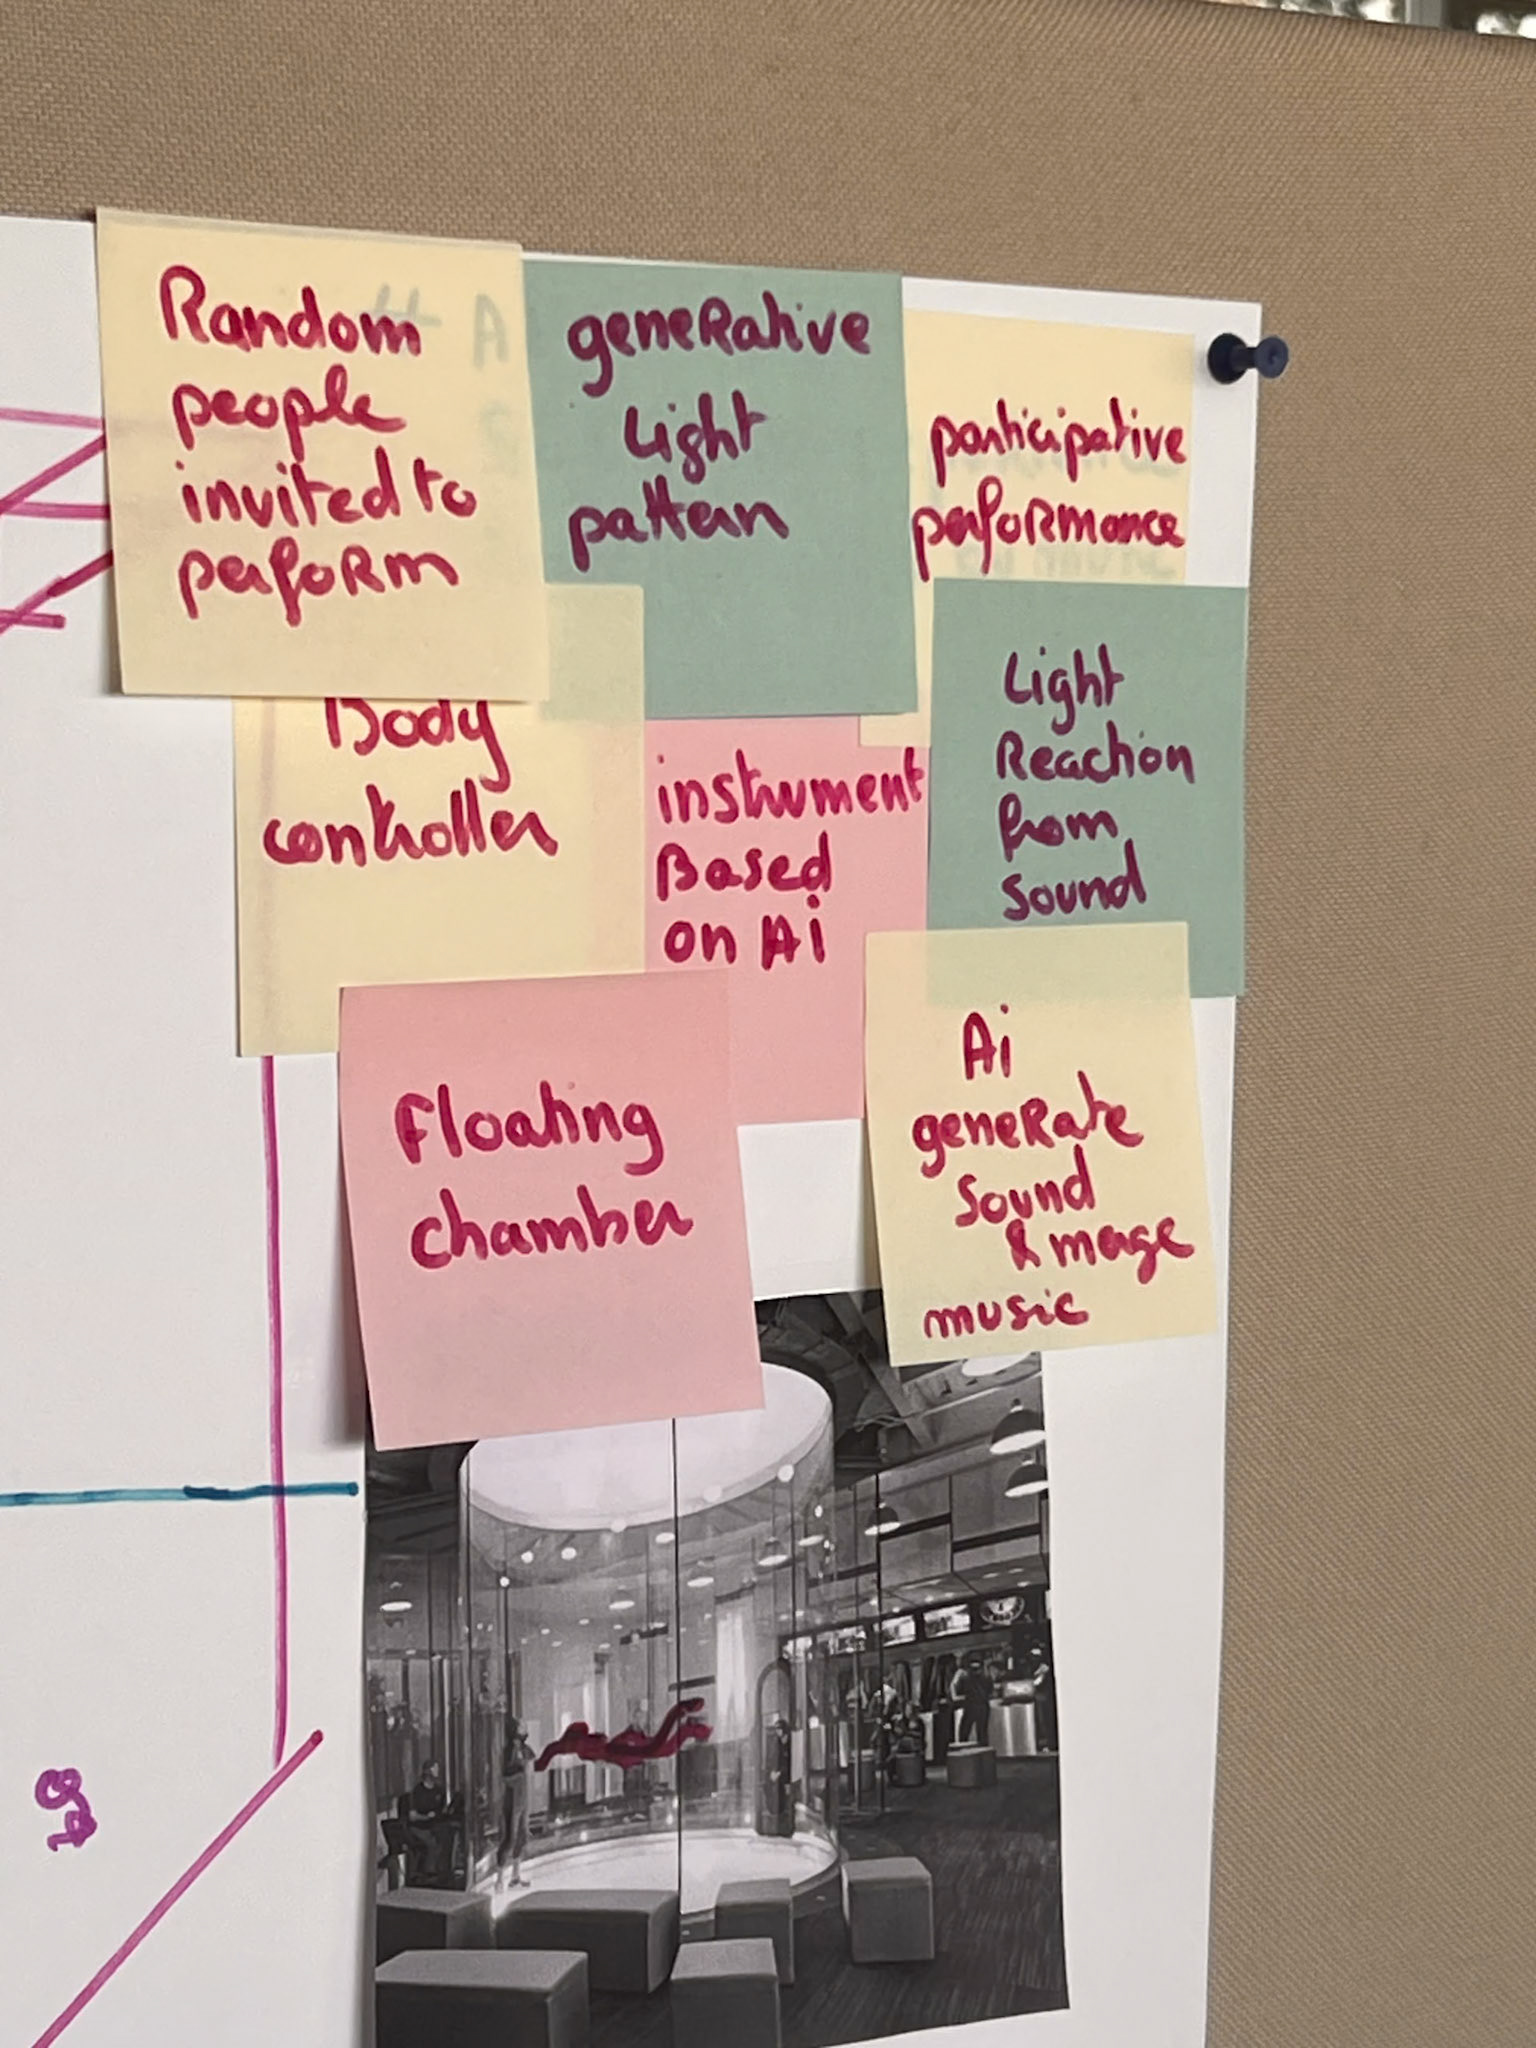 Random
people
invited to
perform
generative
Light
pattern
participative
performance
Body
controller
instrument
Based
on Ai
Light
Reaction
from
sound
Floating
chamber
Ai
generate
sound
& merge
music